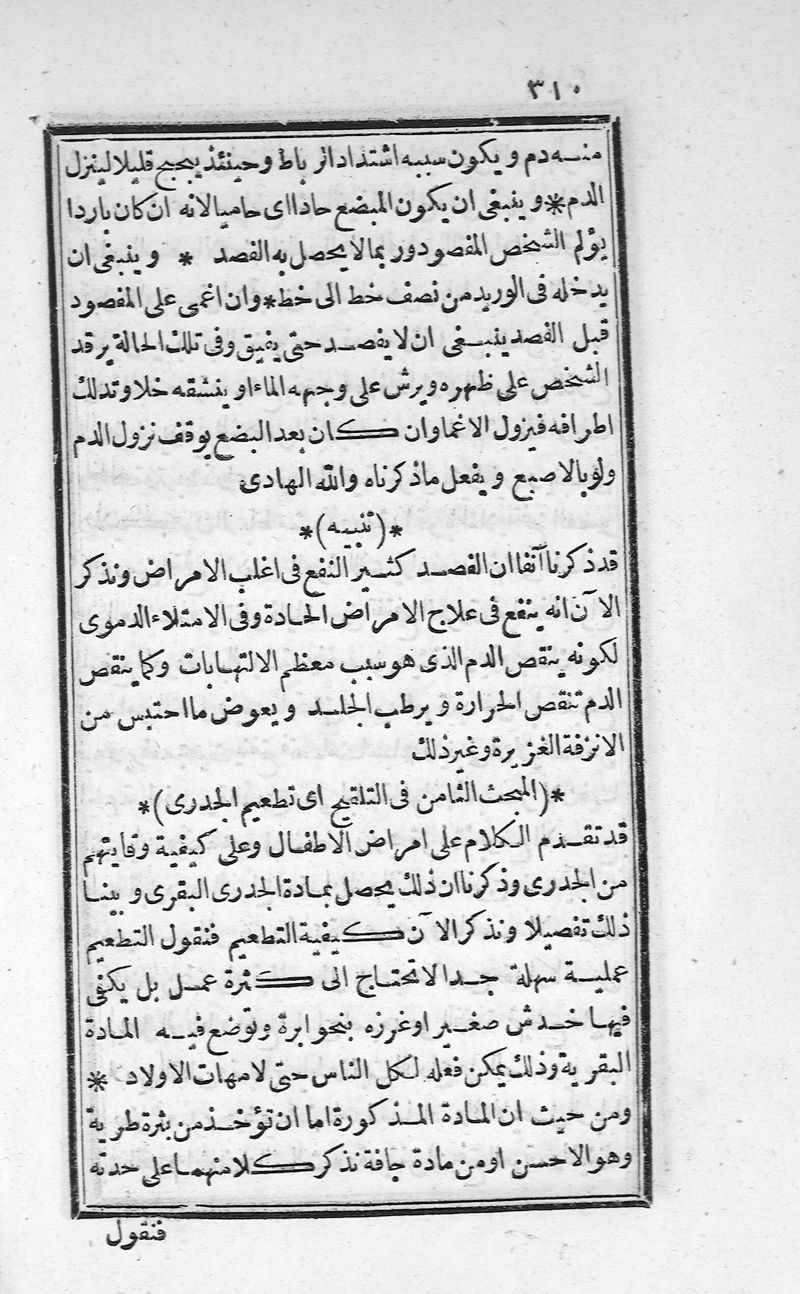 ٣١٠
منه دم ويكون سببه اشتداد الرباط وحينئذ يبجبج قليلا لينزل
الدم * وينبغى ان يكون المبضع حادا اى حاميا لانه ان كان باردا
يؤلم الشخص المفصود وربما لا يحصل به الفصد * وينبغى ان
يدخله فى الوريد من نصف خط الى خط * وان اغمى على المفصود
قبل الفصد ينبغى ان لا يفصد حتى يفيق وفى تلك الحالة يرقد
الشخص على ظهره ويرش على وجهه الماء او ينشقه خلا وتدلك
اطرافه فيزول الاغما وان كان بعد البضع يوقف نزول الدم
ولو بالاصبع ويفعل ما ذكرناه والله الهادى
*(تنبيه)*
قد ذكرنا آنفا ان الفصد كثير النفع فى اغلب الامراض ونذكر
الآن انه ينفع فى علاج الامراض الحادة وفى الامتلاء الدموى
لكونه ينقص الدم الذى هو سبب معظم الالتهابات وكما ينقص
الدم تنقص الحرارة ويرطب الجلد ويعوض ما احتبس من
الانزفة الغزيرة وغير ذلك
*(المبحث الثامن فى التلقيح اى تطعيم الجدرى)*
قد تقدم الكلام على امراض الاطفال وعلى كيفية وقايتهم
من الجدرى وذكرنا ان ذلك يحصل بمادة الجدرى البقرى وبينا
ذلك تفصيلا ونذكر الآن كيفية التطعيم فنقول التطعيم
عملية سهلة جدا لا تحتاج الى كثرة عمل بل يكفى
فيها خدش صغير او غرزه بنحو ابرة وتوضع فيه المادة
البقرية وذلك يمكن فعله لكل الناس حتى لامهات الاولاد *
ومن حيث ان المادة المذكورة اما ان تؤخذ من بثرة طرية
وهو الاحسن او من مادة جافة نذكر كلا منهما على حدته
فنقول